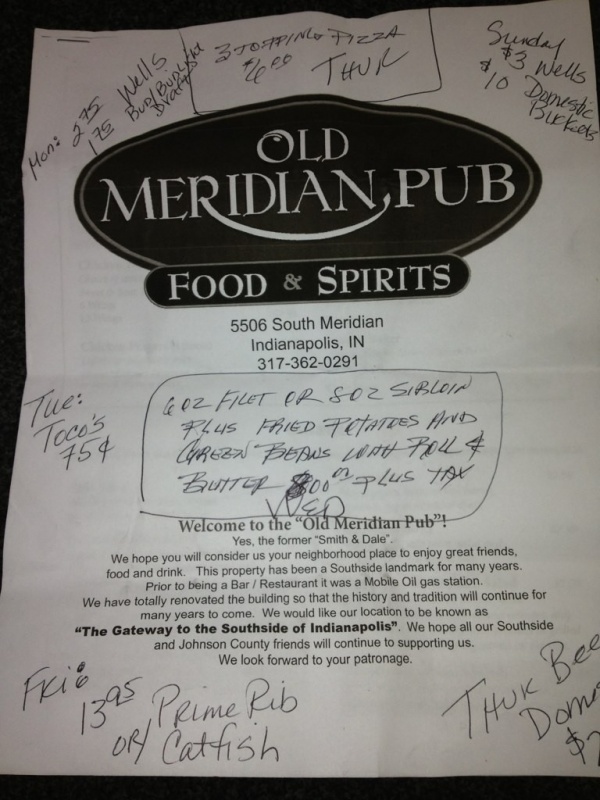 Mon: 2.75 Wells
1.75 Bud/Bud Lite
Drafts
3 TOPPING PIZZA
$6.00
THUR
Sunday
$3 Wells
$10 Domestic
Buckets
OLD
MERIDIAN PUB
FOOD & SPIRITS
5506 South Meridian
Indianapolis, IN
317-362-0291
Tue:
Toco's
75¢
6 OZ FILET OR 8 OZ SIRLOIN
PLUS FRIED POTATOES AND
GREEN BEANS WITH ROLL &
BUTTER PLUS TAX
WED
Welcome to the "Old Meridian Pub"!
Yes, the former "Smith & Dale".
We hope you will consider us your neighborhood place to enjoy great friends,
food and drink. This property has been a Southside landmark for many years.
Prior to being a Bar / Restaurant it was a Mobile Oil gas station.
We have totally renovated the building so that the history and tradition will continue for
many years to come. We would like our location to be known as
"The Gateway to the Southside of Indianapolis". We hope all our Southside
and Johnson County friends will continue to supporting us.
We look forward to your patronage.
FRI:
13.95 Prime Rib
OR/ Catfish
THUR Bee
Dome
$